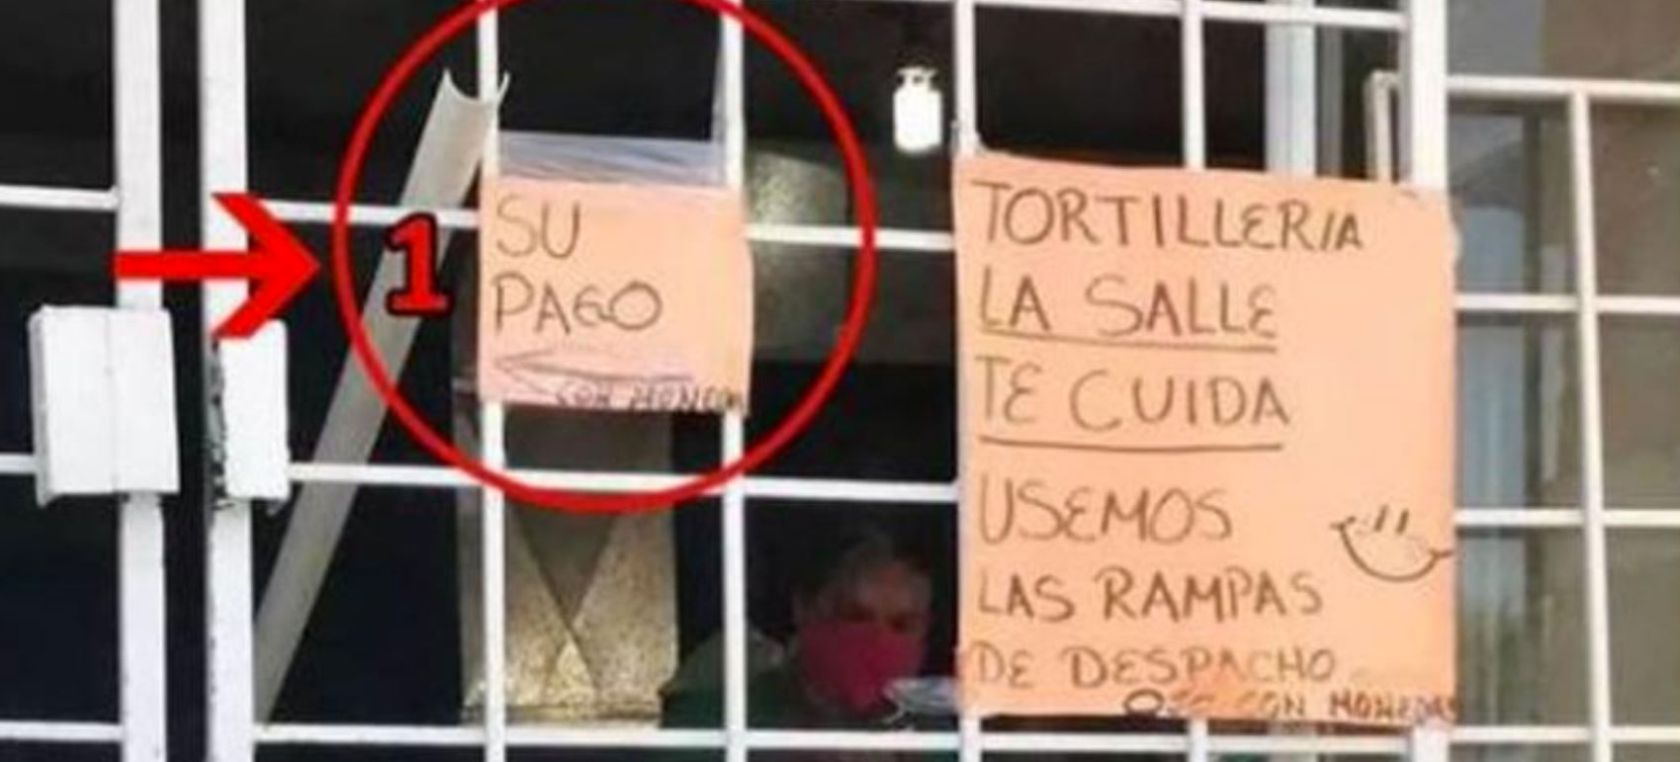 1
SU
PAGO
CON MONEDA
TORTILLERIA
LA SALLE
TE CUIDA
USEMOS
LAS RAMPAS
DE DESPACHO
CON MONEDAS